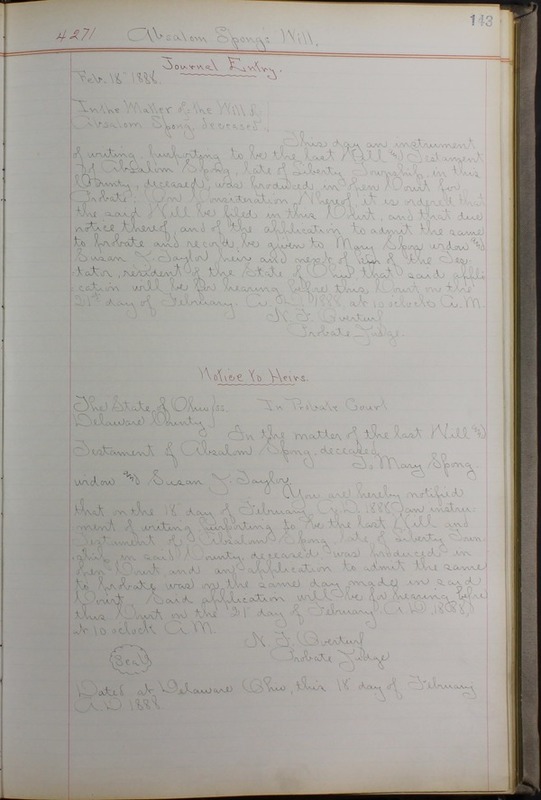 143
4271 Absalom Spong's Will.
Journal Entry.
Feb. 18" 1888.
In the Matter of the Will of
Absalom Spong, deceased.
This day an instrument
of writing, purporting to be the last Will & Testament
of Absalom Spong, late of Liberty Township, in this
County, deceased, was produced in open Court for
Probate. On Consideration Whereof, it is ordered that
the said Will be filed in this Court, and that due
notice thereof, and of the application to admit the same
to probate and record, be given to Mary Spong widow &
Susan J. Taylor heirs and next of kin of the Tes-
tator, resident of the State of Ohio that said appli
cation will be for hearing before this Court on the
21st day of February A.D. 1888 at 10 oclock A.M.
N. F. Overturf
Probate Judge.
Notice to Heirs.
The State of Ohio ss. In Probate Court
Delaware County
In the matter of the last Will &
Testament of Absalom Spong, deceased
To Mary Spong
widow and Susan J. Taylor
You are hereby notified
that on the 18 day of February A.D. 1888, an instru-
ment of writing purporting to be the last Will and
Testament of Absalom Spong late of Liberty Town-
ship in said County deceased was produced in
open Court and an application to admit the same
to probate was on the same day made in said
Court. Said application will be for hearing before
this Court on the 21st day of February A.D. 1888
at 10 oclock A.M.
N. F. Overturf
Probate Judge
Seal
Dated at Delaware Ohio, this 18 day of February
A.D. 1888